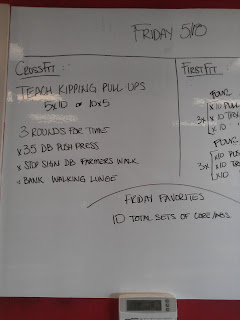 FRIDAY 5/18
CROSSFIT:
TEACH KIPPING PULL UPS
5x10 or 10x5
3 ROUNDS FOR TIME
x35 DB PUSH PRESS
x STOP SIGN DB FARMERS WALK
x BANK WALKING LUNGE
FIRSTFIT:
FOUR
x10 PULL
3x x10 TRX
x10
FOUR
x10 PUS
3x x10 TR
x10
FRIDAY FAVORITES
10 TOTAL SETS OF CORE/ABS